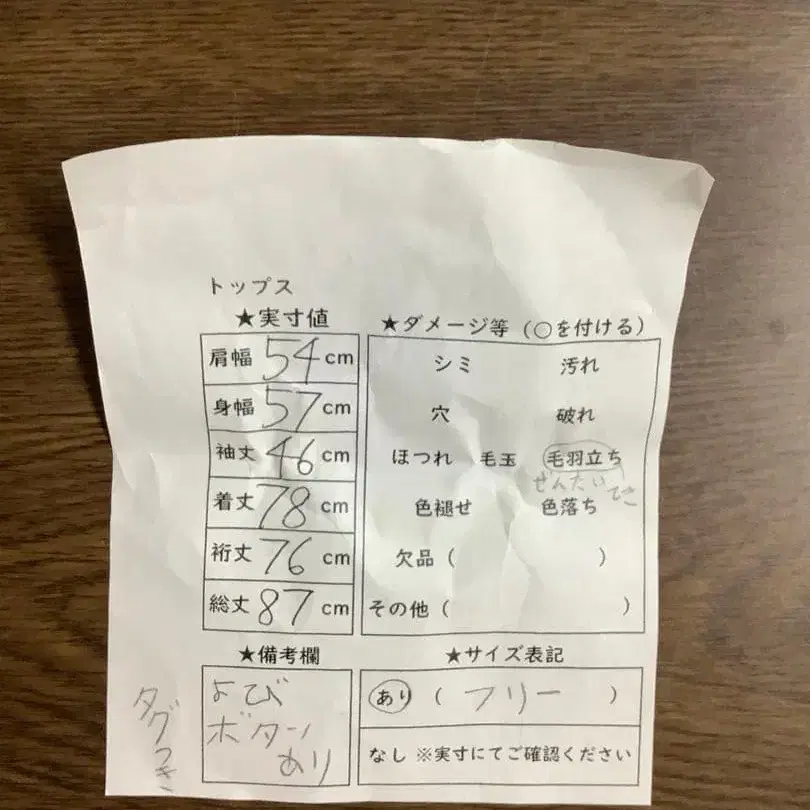 トップス
★実寸値
肩幅 54 cm
身幅 57 cm
袖丈 46 cm
着丈 78 cm
裄丈 76 cm
総丈 87 cm
★ダメージ等（○を付ける）
シミ 汚れ
穴 破れ
ほつれ 毛玉 毛羽立ち
ぜんたい
色褪せ 色落ち
欠品（ ）
その他（ ）
★備考欄
よび
ボタン
あり
★サイズ表記
あり（フリー）
なし ※実寸にてご確認ください
タグつき